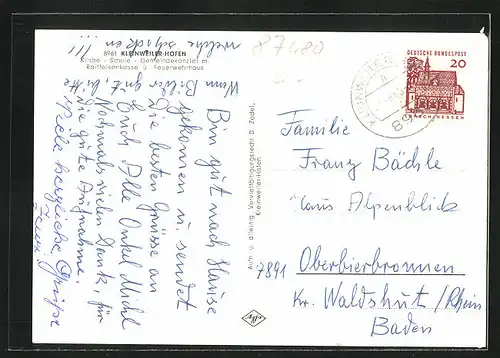 8961 KLEINWEILER-HOFEN
Kirche - Schule - Gemeindekanzlei m.
Raiffeisenkasse u. Feuerwehrhaus
87480
Wenn Bilder gut, bitte
welche schicken !!!
Bin gut nach Hause
gekommen u. sendet
Die besten Grüsse an
Euch Alle Onkel Michl
Nochmals vielen Dank, für
die gute Aufnahme.
Viele herzliche Grüße
Aufn. u. alleinig. Vervielfältigungsrecht: D. Zodel,
Kleinweiler-Hofen
DEUTSCHE BUNDESPOST
20
LORSCH/HESSEN
KLEINWEILER
89
Familie
Franz Bächle
Haus Alpenblick
7891 Oberbierbronnen
Kr. Waldshut / Rhein
Baden